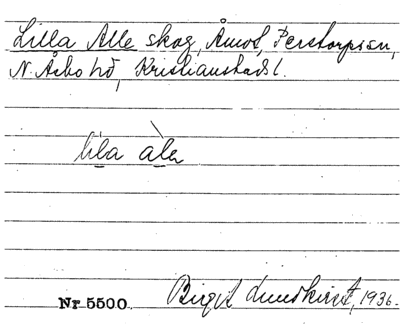 Lilla Alle skog, Åmot, Perstorps sn,
N. Åsbo hd, Kristianstads l.
lila ala
Nr 5500 Birgit Lundkvist, 1936.